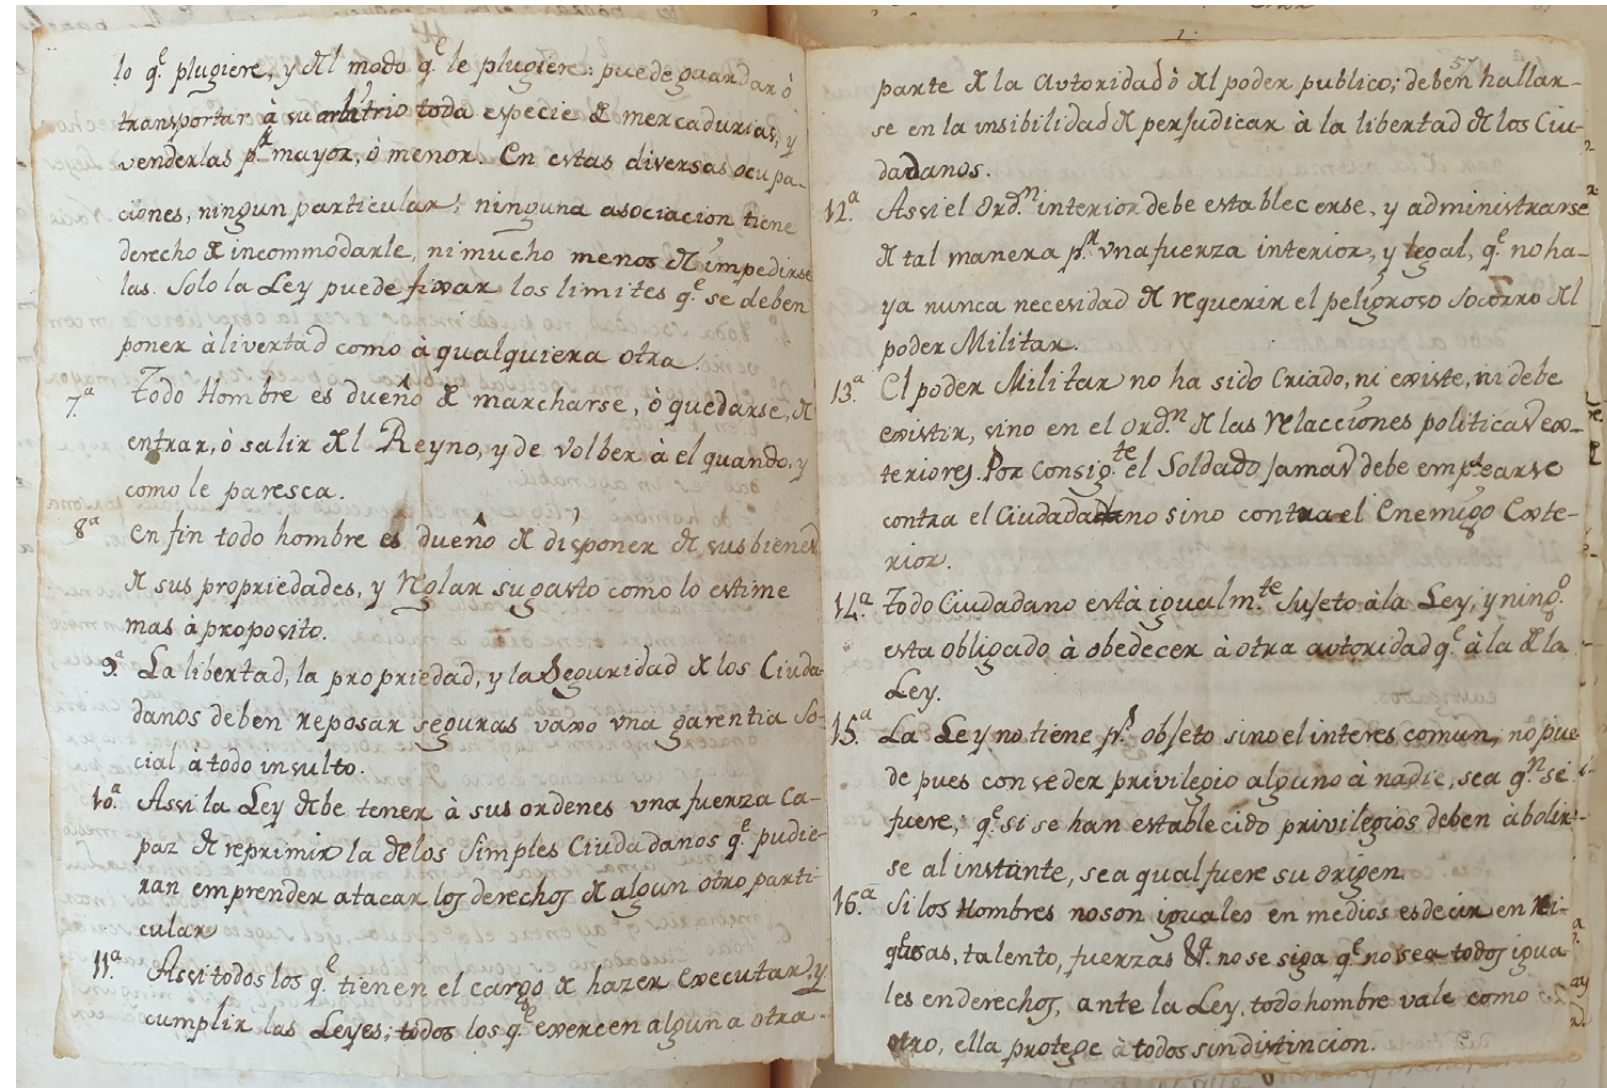 lo q.e plugiere, y del modo q.e le plugiere: puede guardar ò
transportar à su arbitrio toda especie de mercadurias, y
venderlas p.r mayor, ò menor. En estas diversas ocupa-
ciones, ningun particular, ninguna asociacion tiene
derecho de incommodarle, ni mucho menos de impedirse
las. Solo la Ley puede fixar los limites q.e se deben
poner à livertad como à qualquiera otra.
7.a Todo Hombre es dueño de marcharse, ò quedarse, de
entrar, ò salir del Reyno, y de volber à el quando, y
como le paresca.
8.a en fin todo hombre es dueño de disponer de sus bienes
de sus propriedades, y Reglar su gasto como lo estime
mas à proposito.
9.a La libertad, la propriedad, y la Seguridad de los Ciuda-
danos deben reposar seguras vaxo vna garentia So-
cial à todo insulto.
10.a Assi la Ley debe tener à sus ordenes vna fuerza ca-
paz de reprimir la de los Simples Ciudadanos q.e pudie-
ran emprender atacar los derechos de algun otro parti-
cular
11.a Assi todos los q.e tienen el cargo de hazer executar, y
cumplir las Leyes; todos los q.e exercen alguna otra
57
parte de la autoridad ò del poder publico; deben hallar-
se en la insibilidad de perjudicar à la libertad de los Ciu-
dadanos.
12.a Assi el Ord.n interior debe establecerse, y administrarse
de tal manera p.r vna fuerza interior, y legal, q.e no ha-
ya nunca necesidad de requerir el peligroso Socorro del
poder Militar.
13.a El poder Militar no ha sido Criado, ni existe, ni debe
existir, sino en el Ord.n de las Relacciones politicas ex-
teriores. Por Consig.te el Soldado jamas debe emplearse
contra el Ciudadano sino contra el Enemigo Exte-
rior.
14.a Todo Ciudadano està igualm.te Sujeto à la Ley, y ning.o
esta obligado à obedecer à otra autoridad q.e à la de la
Ley.
15.a La Ley no tiene p.r objeto sino el interes comun, no pue
de pues conseder privilegio alguno à nadie, sea q.n se
fuere, q.e si se han establecido privilegios deben abolir-
se al instante, sea qual fuere su origen.
16.a Si los Hombres no son iguales en medios es decir en ri-
quesas, talento, fuerzas &.a no se siga q.e no sea todos igua
les en derechos, ante la Ley, todo hombre vale como
otro, ella protege à todos sin distincion.